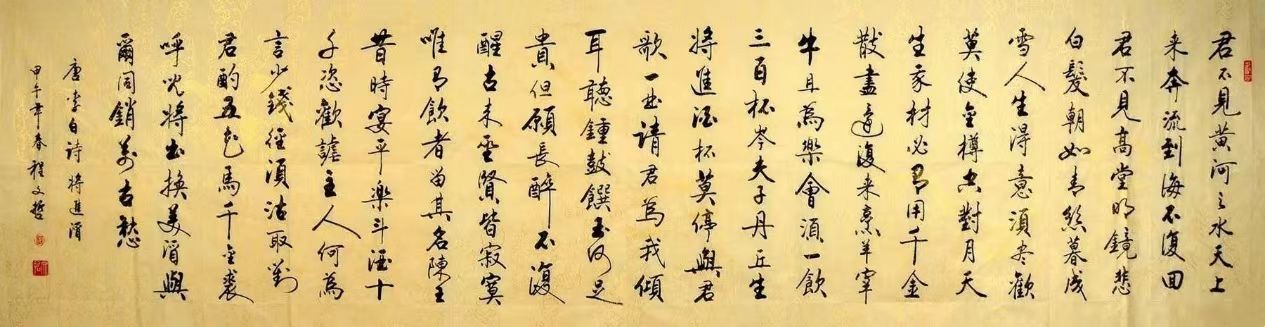 君不見黃河之水天上
来奔流到海不復回
君不見高堂明鏡悲
白髮朝如青絲暮成
雪人生得意須尽歡
莫使金樽空對月天
生家材必有用千金
散盡還復来烹羊宰
牛且為樂會須一飲
三百杯岑夫子丹丘生
將進酒杯莫停與君
歌一曲請君為我傾
耳聽鍾鼓饌玉何足
貴但願長醉不復
醒古来聖賢皆寂寞
唯有飲者留其名陳王
昔時宴平樂斗酒十
千恣歡謔主人何為
言少錢徑須沽取對
君酌五花馬千金裘
呼兒將出換美酒與
爾同銷萬古愁
唐李白詩將進酒
甲午年春程文哲